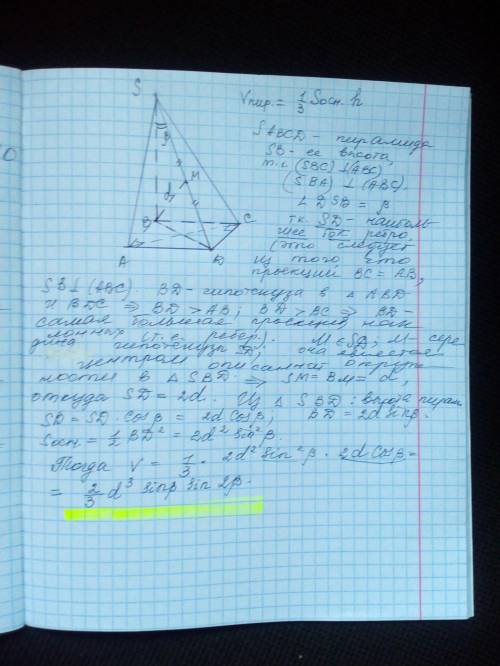 S
Vпир. = 1/3 Sосн. h
SABCD - пирамида
SB - ее высота,
т.к (SBC) ⊥ (ABC)
(SBA) ⊥ (ABC).
∠ DSB = β
β
M
d
B
C
A
D
тк. SD - наиболь
шее бок ребро.
(это следует
из того что
проекции BC = AB,
SB ⊥ (ABC). BD - гипотенуза в △ ABD
и BDC ⇒ BD > AB; BD > BC ⇒ BD -
самая большая проекция нак
лонных (т.е. ребер). M ∈ SD, M - сере
дина гипотенузы SD; она является
центром описанной окруж
ности в △ SBD. ⇒ SM = BM = d,
откуда SD = 2d. Из △ SBD: высота пирам.
SB = SD · cosβ = 2d cosβ; BD = 2d sinβ.
Sосн. = 1/2 BD² = 2d² sin²β.
Тогда V = 1/3 · 2d² sin²β · 2d cosβ =
= 2/3 d³ sinβ sin 2β.